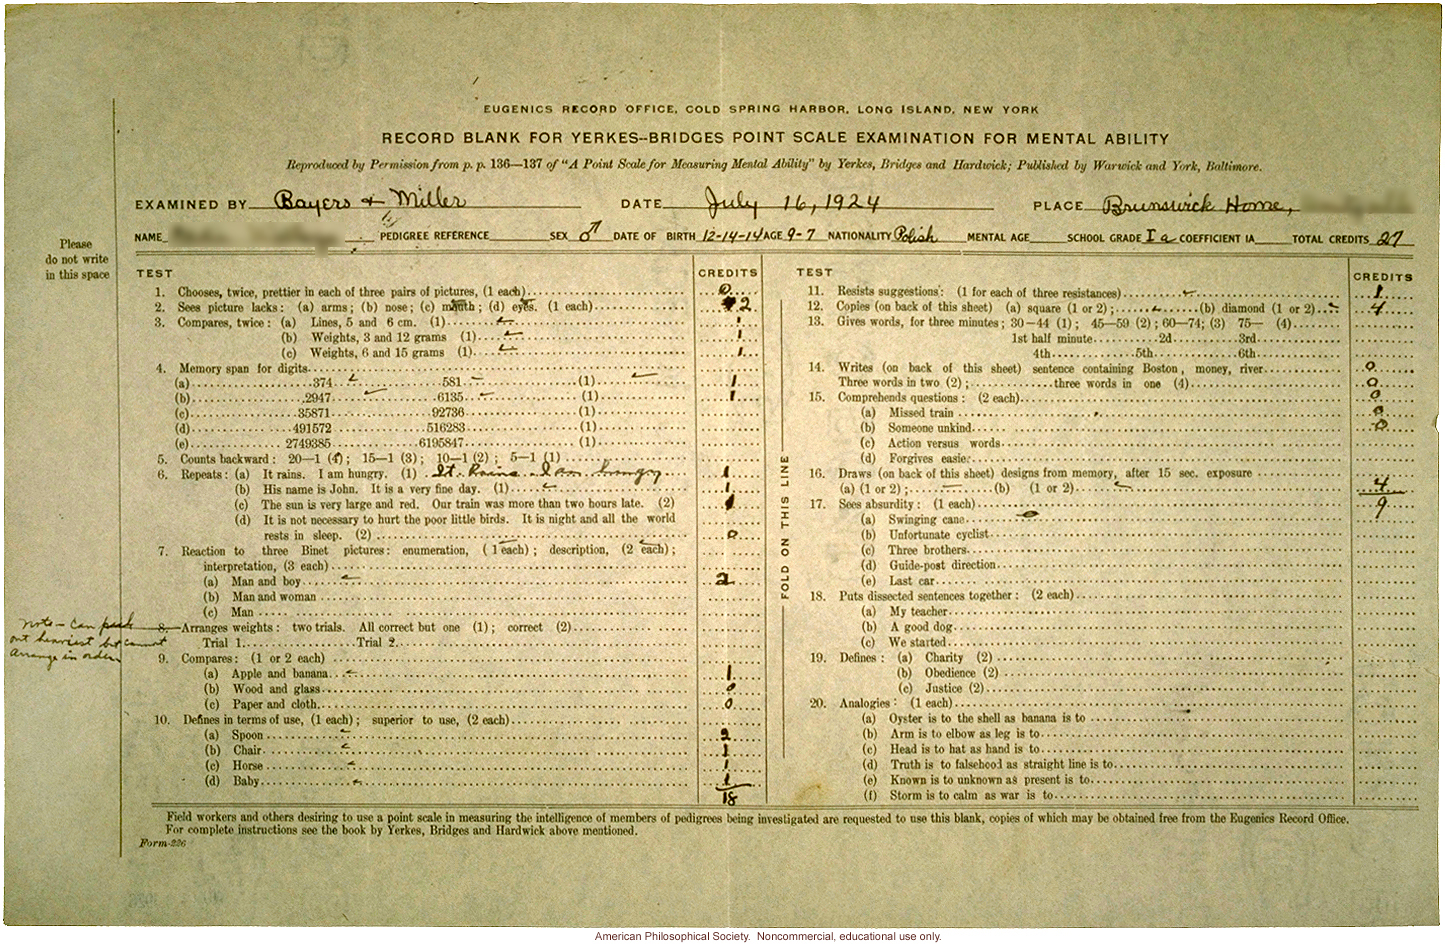 EUGENICS RECORD OFFICE, COLD SPRING HARBOR, LONG ISLAND, NEW YORK
RECORD BLANK FOR YERKES--BRIDGES POINT SCALE EXAMINATION FOR MENTAL ABILITY
Reproduced by Permission from p. p. 136—137 of "A Point Scale for Measuring Mental Ability" by Yerkes, Bridges and Hardwick; Published by Warwick and York, Baltimore.
EXAMINED BY Bayers & Miller DATE July 16, 1924 PLACE Brunswick Home,
NAME PEDIGREE REFERENCE SEX ♂ DATE OF BIRTH 12-14-14 AGE 9-7 NATIONALITY Polish MENTAL AGE SCHOOL GRADE I a COEFFICIENT IA TOTAL CREDITS 27
Please
do not write
in this space
TEST CREDITS
1. Chooses, twice, prettier in each of three pairs of pictures, (1 each) 0
2. Sees picture lacks: (a) arms; (b) nose; (c) mouth; (d) eyes. (1 each) 2
3. Compares, twice: (a) Lines, 5 and 6 cm. (1) 1
(b) Weights, 3 and 12 grams (1) 1
(c) Weights, 6 and 15 grams (1) 1
4. Memory span for digits
(a) 374 581 (1) 1
(b) 2947 6135 (1) 1
(c) 35871 92736 (1)
(d) 491572 516283 (1)
(e) 2749385 6195847 (1)
5. Counts backward: 20—1 (4); 15—1 (3); 10—1 (2); 5—1 (1)
6. Repeats: (a) It rains. I am hungry. (1) It Rains I am hungry 1
(b) His name is John. It is a very fine day. (1) 1
(c) The sun is very large and red. Our train was more than two hours late. (2)
(d) It is not necessary to hurt the poor little birds. It is night and all the world
rests in sleep. (2) 0
7. Reaction to three Binet pictures: enumeration, (1 each); description, (2 each);
interpretation, (3 each)
(a) Man and boy 2
(b) Man and woman
(c) Man
8. Arranges weights: two trials. All correct but one (1); correct (2)
Trial 1 Trial 2
note - can pick
out heaviest but cannot
arrange in order
9. Compares: (1 or 2 each)
(a) Apple and banana 1
(b) Wood and glass 0
(c) Paper and cloth 0
10. Defines in terms of use, (1 each); superior to use, (2 each)
(a) Spoon 2
(b) Chair 1
(c) Horse 1
(d) Baby 1
18
TEST CREDITS
11. Resists suggestions: (1 for each of three resistances) 1
12. Copies (on back of this sheet) (a) square (1 or 2); (b) diamond (1 or 2) 4
13. Gives words, for three minutes; 30—44 (1); 45—59 (2); 60—74; (3) 75— (4)
1st half minute 2d 3rd
4th 5th 6th
14. Writes (on back of this sheet) sentence containing Boston, money, river 0
Three words in two (2); three words in one (4) 0
15. Comprehends questions: (2 each) 0
(a) Missed train 0
(b) Someone unkind 0
(c) Action versus words
(d) Forgives easier
16. Draws (on back of this sheet) designs from memory, after 15 sec. exposure
(a) (1 or 2); (b) (1 or 2) 4
17. Sees absurdity: (1 each) 9
(a) Swinging cane
(b) Unfortunate cyclist
(c) Three brothers
(d) Guide-post direction
(e) Last car
18. Puts dissected sentences together: (2 each)
(a) My teacher
(b) A good dog
(c) We started
19. Defines: (a) Charity (2)
(b) Obedience (2)
(c) Justice (2)
20. Analogies: (1 each)
(a) Oyster is to the shell as banana is to
(b) Arm is to elbow as leg is to
(c) Head is to hat as hand is to
(d) Truth is to falsehood as straight line is to
(e) Known is to unknown as present is to
(f) Storm is to calm as war is to
FOLD ON THIS LINE
Field workers and others desiring to use a point scale in measuring the intelligence of members of pedigrees being investigated are requested to use this blank, copies of which may be obtained free from the Eugenics Record Office.
For complete instructions see the book by Yerkes, Bridges and Hardwick above mentioned.
Form-226
American Philosophical Society. Noncommercial, educational use only.